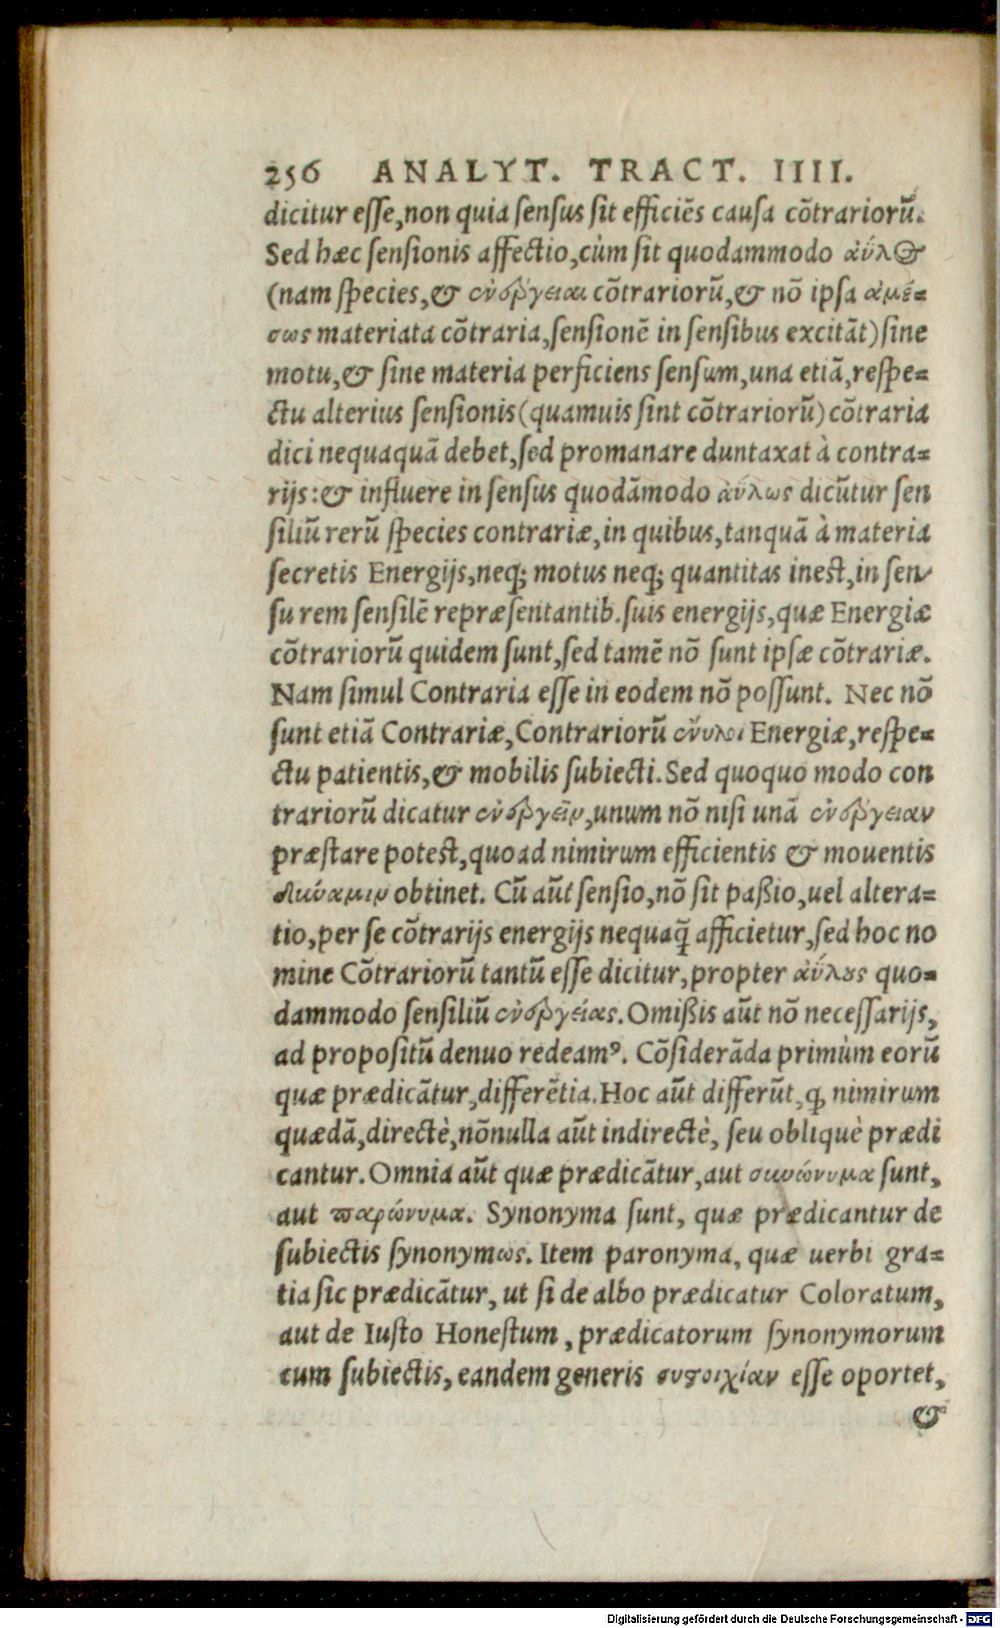 256 ANALYT. TRACT. IIII.
dicitur esse, non quia sensus sit efficiēs causa cōtrariorū.
Sed hæc sensionis affectio, cùm sit quodammodo ἀύλος
(nam species, & ἐνέργειαι cōtrariorū, & nō ipsa ἀμέ=
σως materiata cōtraria, sensionē in sensibus excitāt) sine
motu, & sine materia perficiens sensum, una etiā, respe=
ctu alterius sensionis (quamuis sint cōtrariorū) cōtraria
dici nequaquā debet, sed promanare duntaxat à contra=
rijs: & influere in sensus quodāmodo ἀύλως dicūtur sen
siliū rerū species contrariæ, in quibus, tanquā à materia
secretis Energijs, neq; motus neq; quantitas inest, in sen
su rem sensilē repræsentantib. suis energijs, quæ Energiæ
cōtrariorū quidem sunt, sed tamē nō sunt ipsæ cōtrariæ.
Nam simul Contraria esse in eodem nō possunt. Nec nō
sunt etiā Contrariæ, Contrariorū ἔνυλοι Energiæ, respe=
ctu patientis, & mobilis subiecti. Sed quoquo modo con
trariorū dicatur ἐνέργεῖν, unum nō nisi unā ἐνέργειαν
præstare potest, quoad nimirum efficientis & mouentis
δύναμιν obtinet. Cū aūt sensio, nō sit paßio, uel altera=
tio, per se cōtrarijs energijs nequaq̄ afficietur, sed hoc no
mine Cōtrariorū tantū esse dicitur, propter ἀΰλους quo=
dammodo sensiliū ἐνέργείας. Omißis aūt nō necessarijs,
ad propositū denuo redeamꝰ. Cōsiderāda primùm eorū
quæ prædicātur, differētia. Hoc aūt differūt, ꝙ nimirum
quædā, directè, nōnulla aūt indirectè, seu obliquè prædi
cantur. Omnia aūt quæ prædicātur, aut συνώνυμα sunt,
aut παρώνυμα. Synonyma sunt, quæ prædicantur de
subiectis synonymως. Item paronyma, quæ uerbi gra=
tia sic prædicātur, ut si de albo prædicatur Coloratum,
aut de Iusto Honestum, prædicatorum synonymorum
cum subiectis, eandem generis συστοιχίαν esse oportet,
&
Digitalisierung gefördert durch die Deutsche Forschungsgemeinschaft - DFG